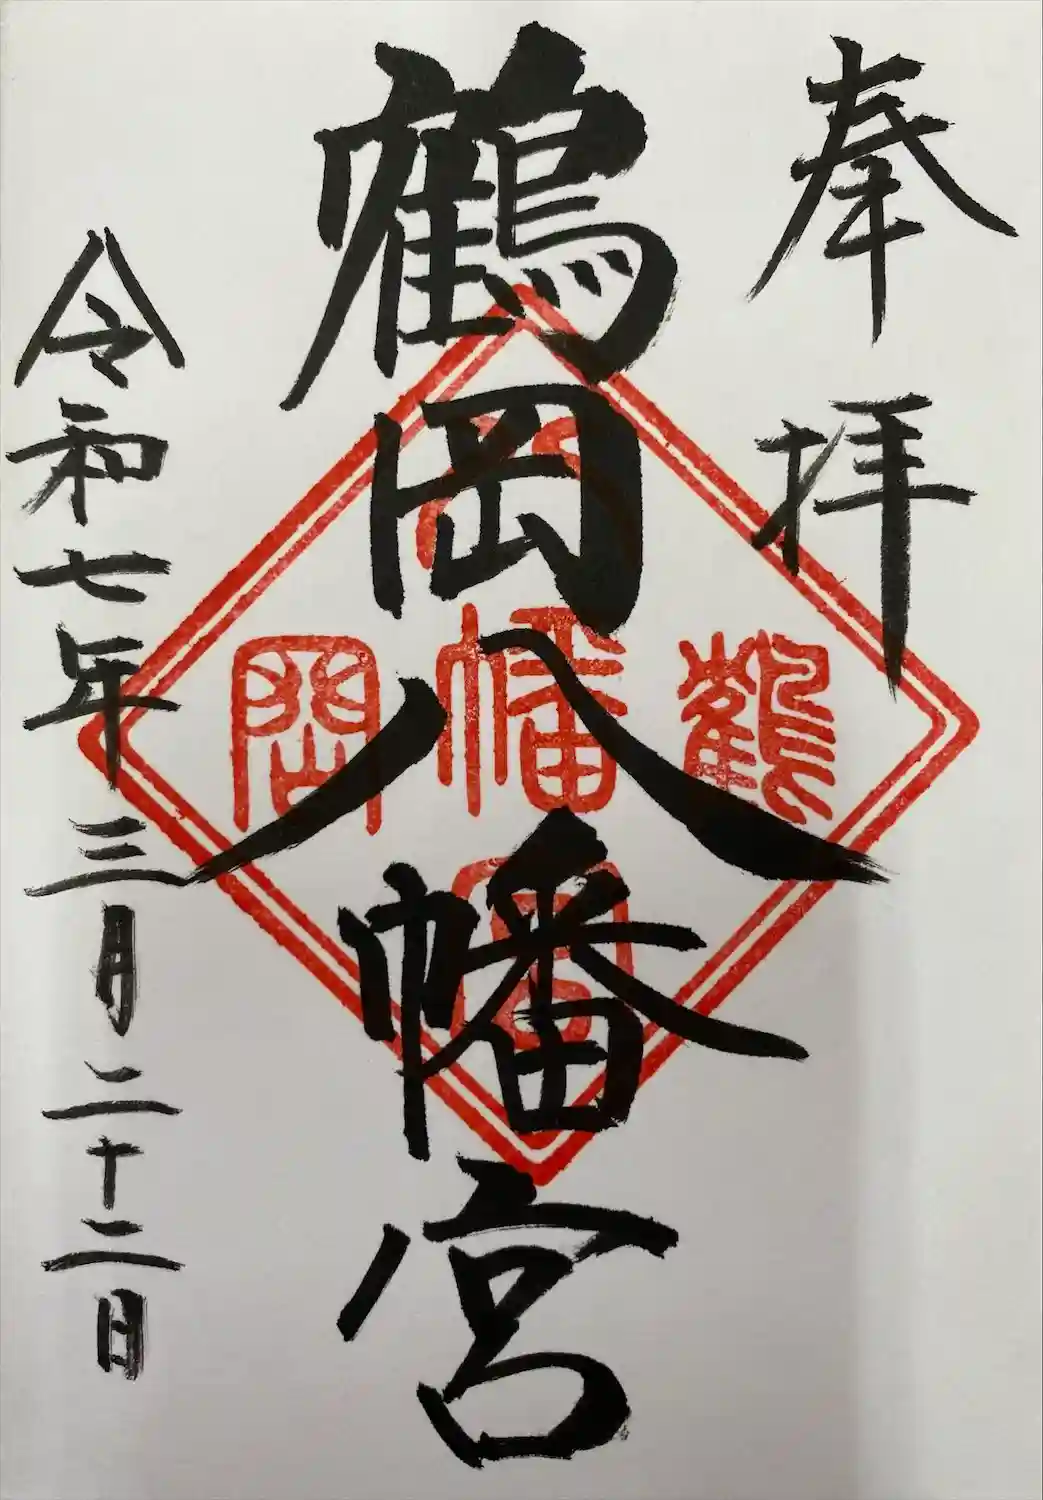 奉拝
鶴岡八幡宮
令和七年三月二十二日
鶴
幡
岡
宮